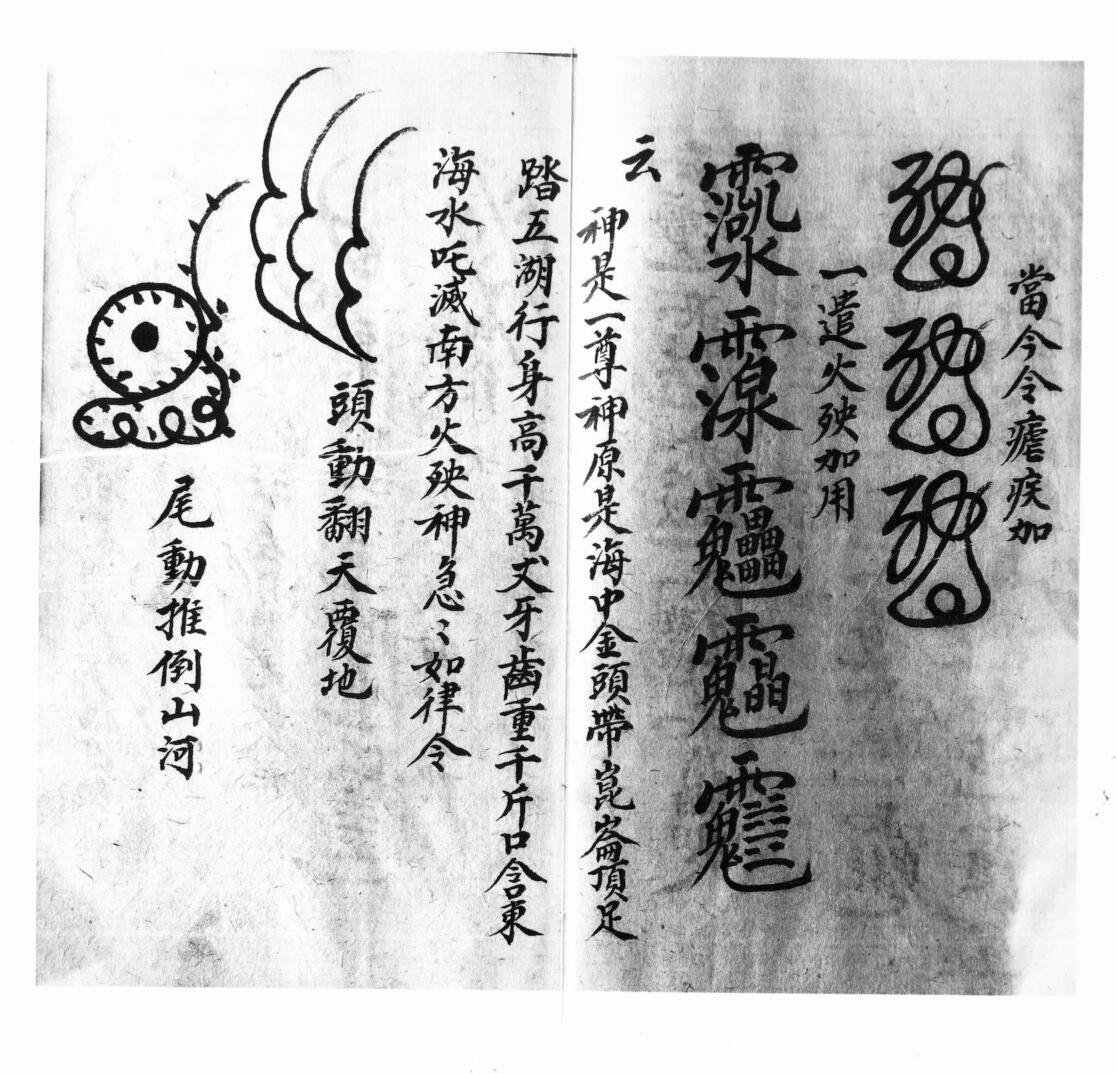 當今令瘧疾加
一遣火殃加用
云
神是一尊神原是海中金頭帶崑崙頂足
踏五湖行身高千萬丈牙齒重千斤口含東
海水吒滅南方火殃神急〻如律令
頭動翻天覆地
尾動推倒山河